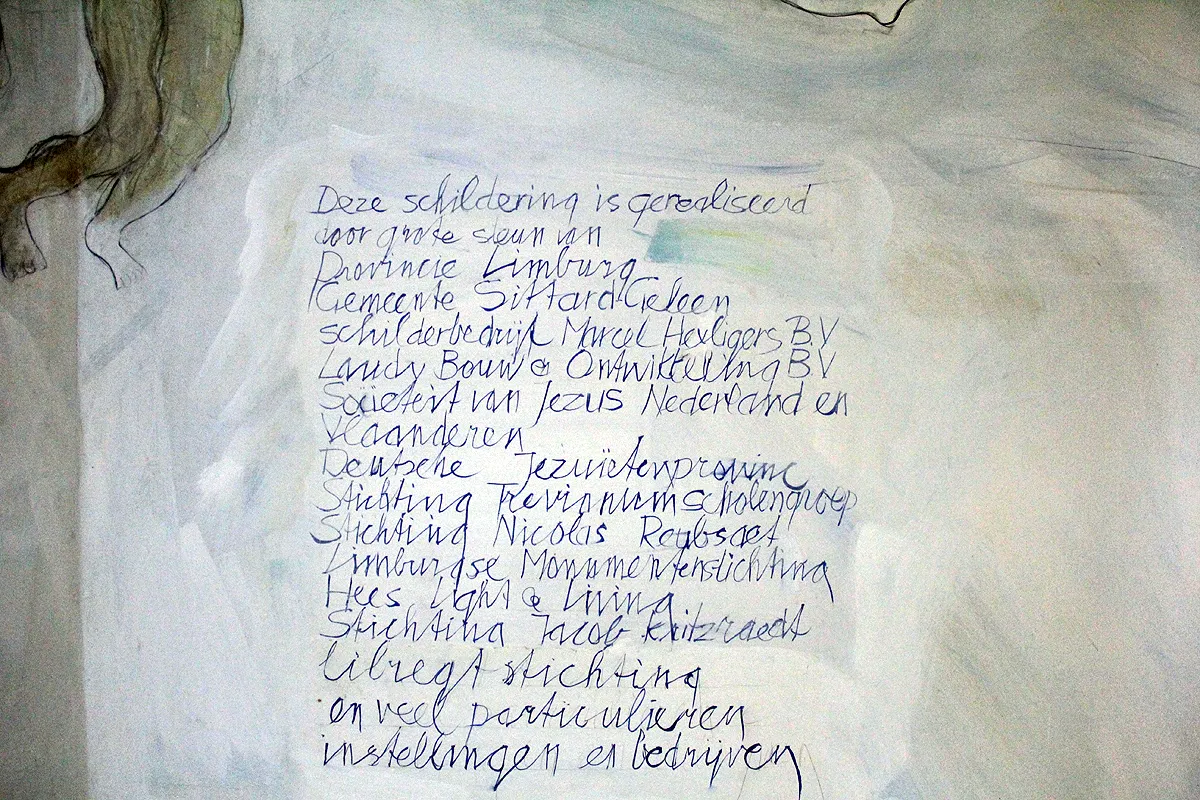 Deze schildering is gerealiseerd
door grote steun van
Provincie Limburg
Gemeente Sittard-Geleen
schilderbedrijf Marcel Heiligers B.V
Laudy Bouw & Ontwikkeling BV
Sociëteit van Jezus Nederland en
Vlaanderen
Deutsche Jezuïetenprovinc
Stichting Trevianum scholengroep
Stichting Nicolas Reubsaet
Limburgse Monumentenstichting
Hees Light & Living
Stichting Jacob Kritzraedt
stichting
en veel particulieren
instellingen en bedrijven